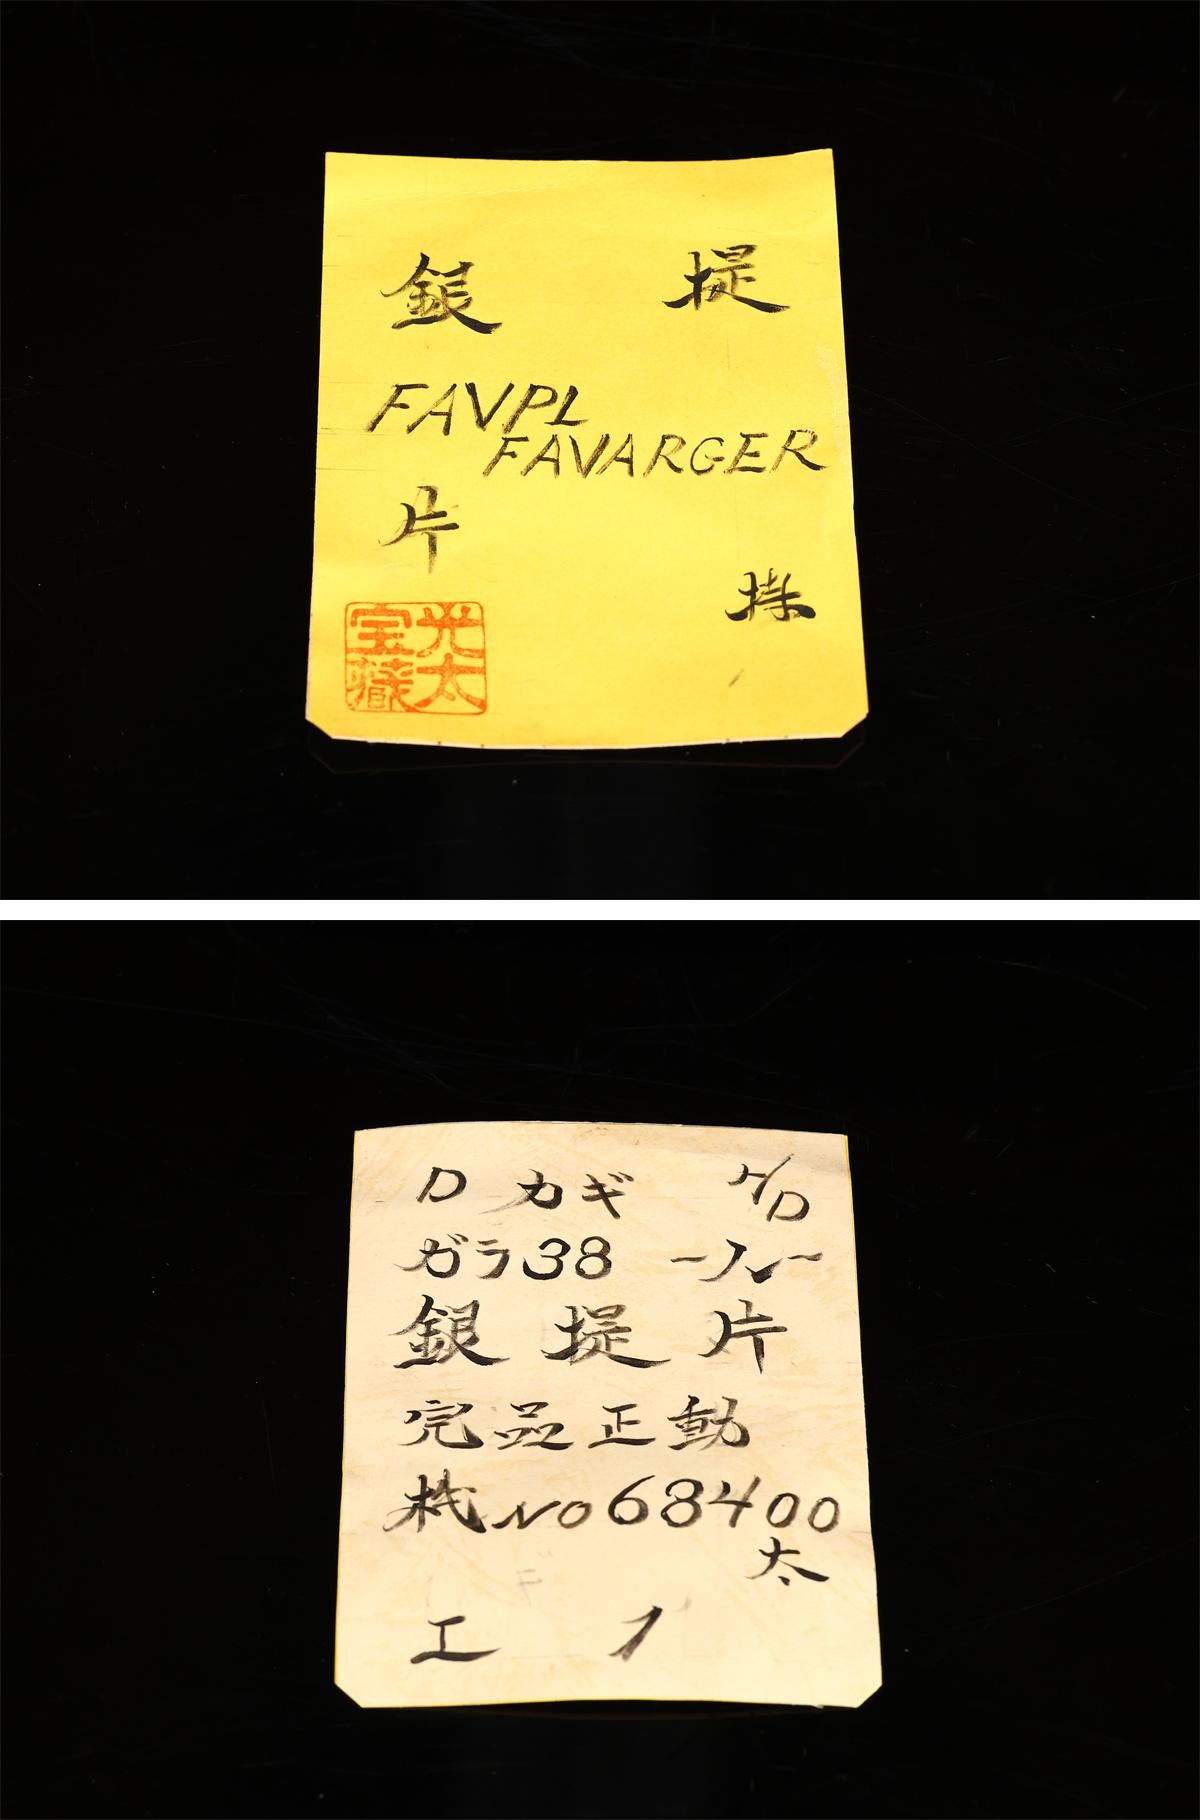 銀 提
FAVPL
FAVARGER
片
光太
宝蔵
D カギ
ガラ38
銀 提 片
完品正動
機No 68400
太
エ イ